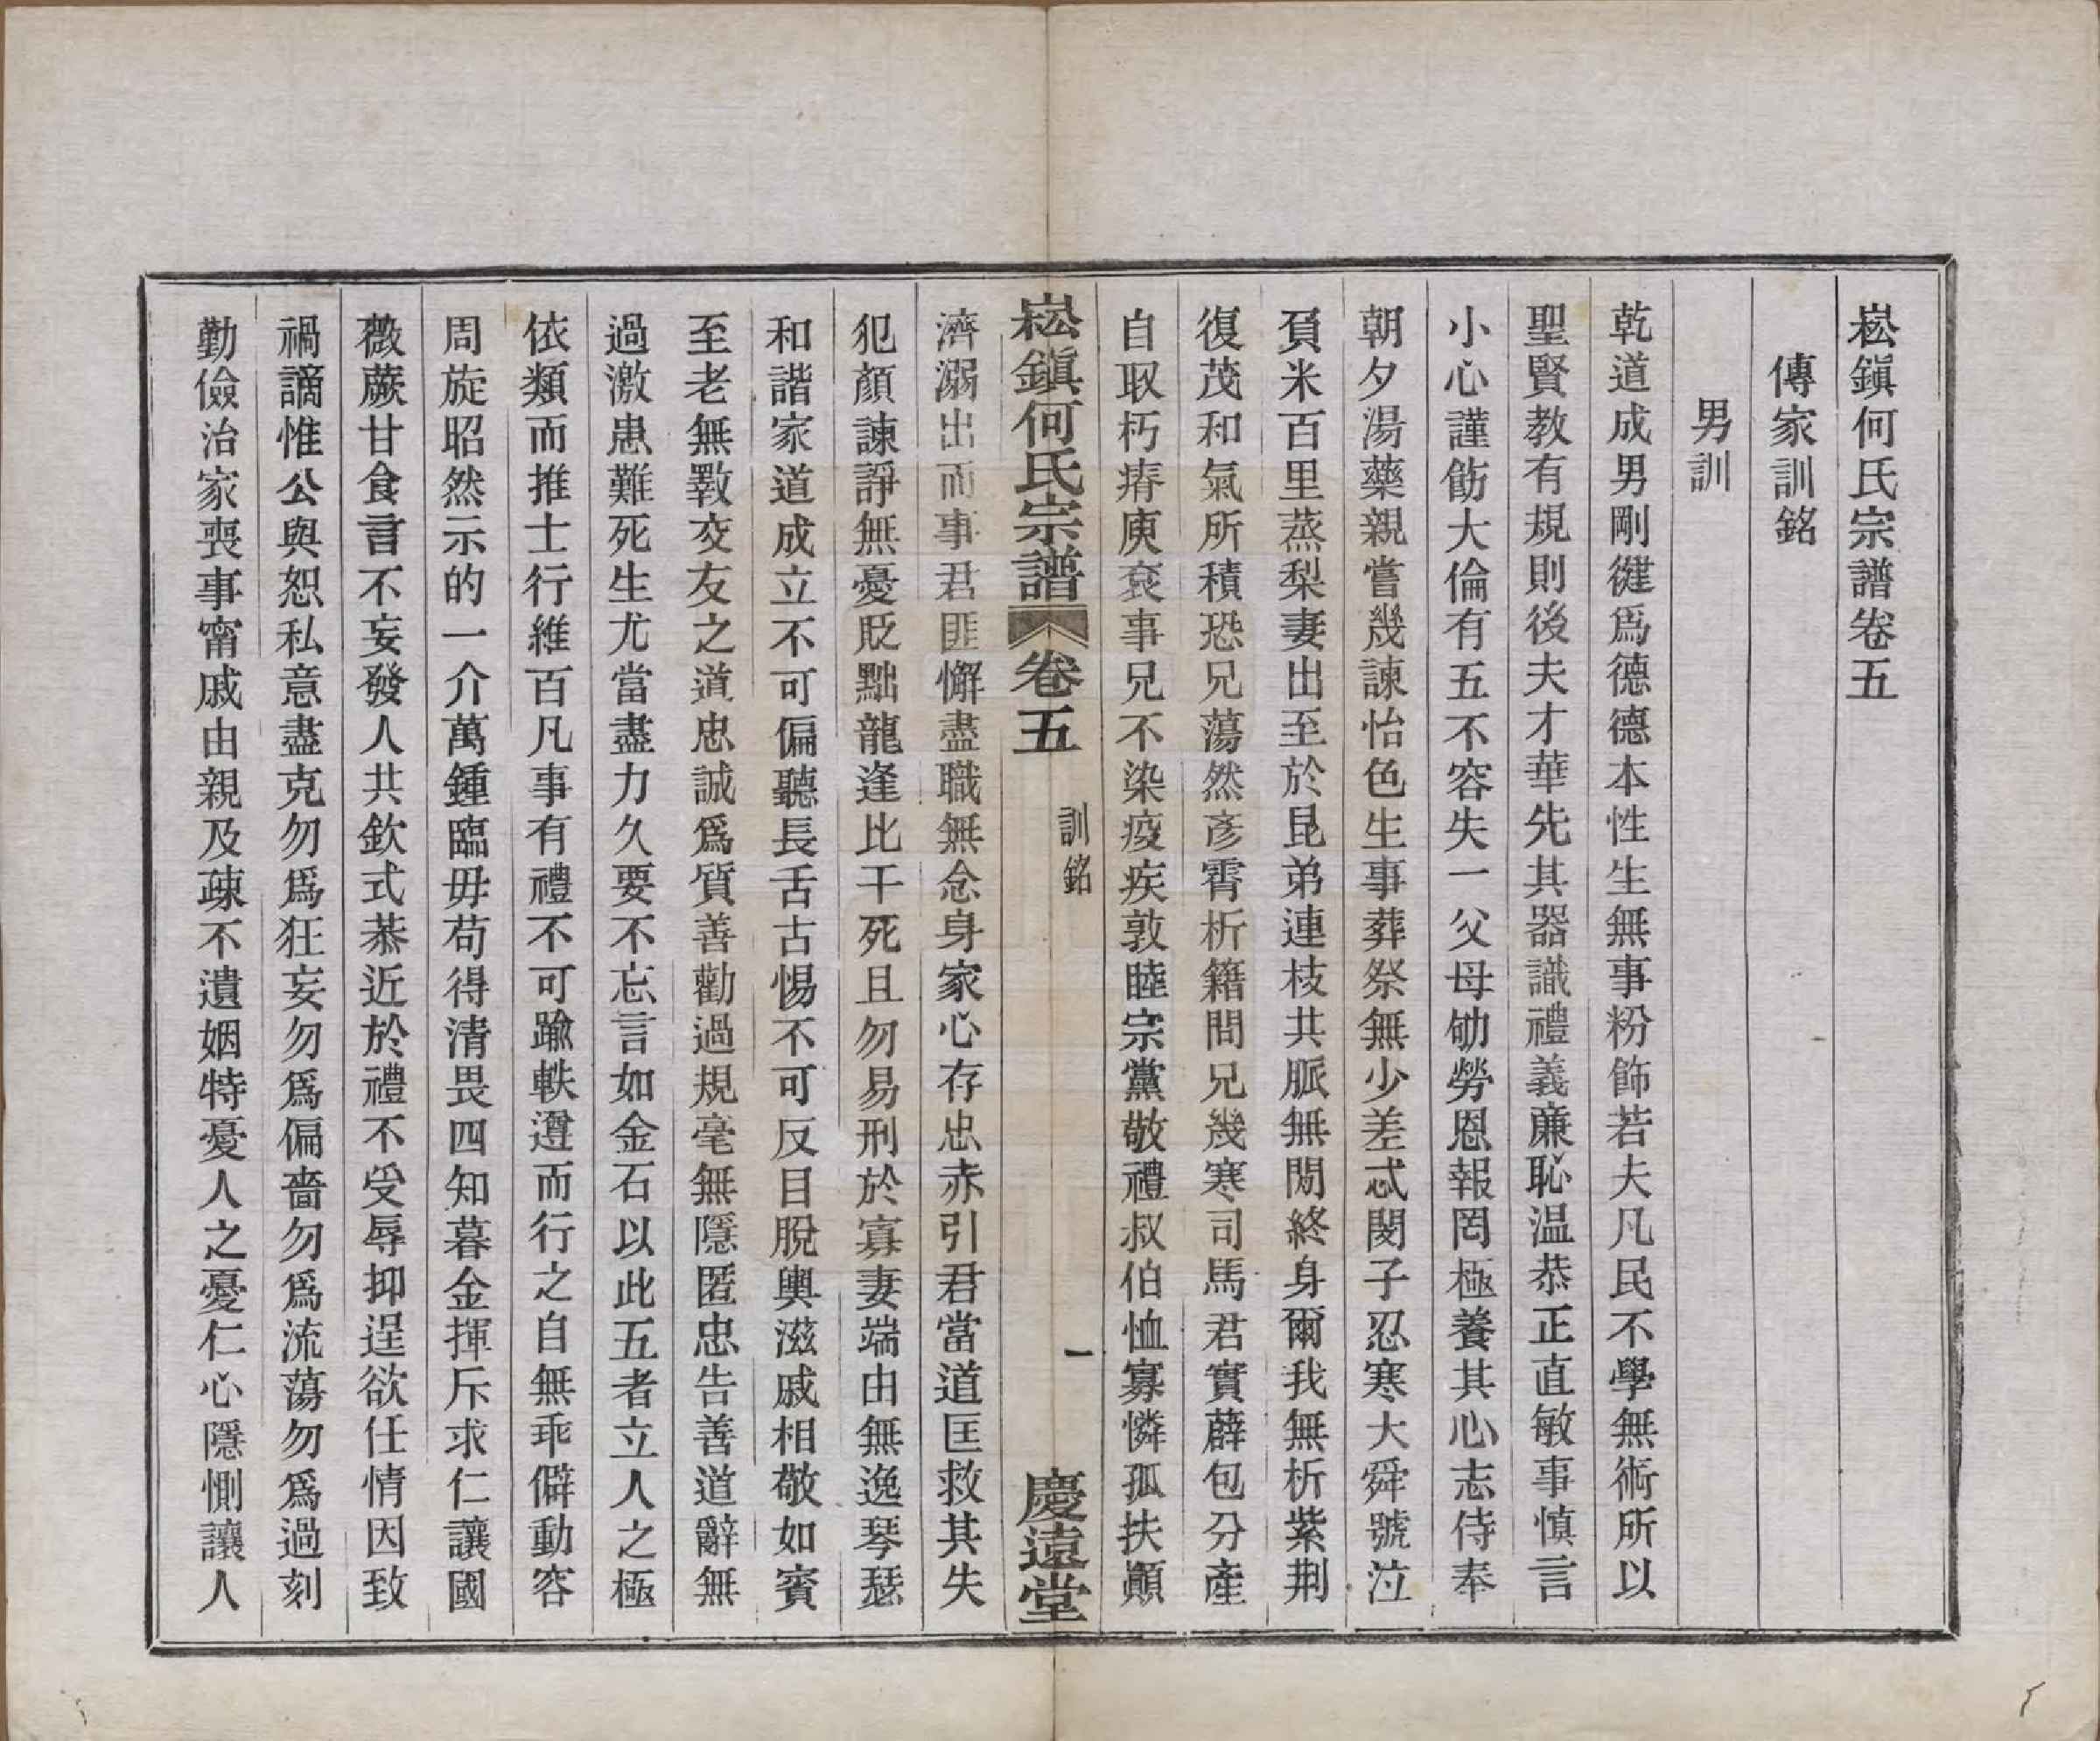 崧鎮何氏宗譜卷五
傳家訓銘
男訓
乾道成男剛健爲德德本性生無事粉飾若夫凡民不學無術所以
聖賢教有規則後夫才華先其器識禮義廉恥温恭正直敏事慎言
小心謹飭大倫有五不容失一父母劬勞恩報罔極養其心志侍奉
朝夕湯藥親嘗幾諫怡色生事葬祭無少差忒閔子忍寒大舜號泣
負米百里蒸梨妻出至於昆弟連枝共脈無閒終身爾我無析紫荆
復茂和氣所積恐兄蕩然彥霄析籍問兄幾寒司馬君實薛包分產
自取朽瘠庾袞事兄不染疫疾敦睦宗黨敬禮叔伯恤寡憐孤扶顚
崧鎮何氏宗譜 卷五 訓銘 一 慶遠堂
濟溺出而事君匪懈盡職無念身家心存忠赤引君當道匡救其失
犯顏諫諍無憂貶黜龍逢比干死且勿易刑於寡妻端由無逸琴瑟
和諧家道成立不可偏聽長舌古惕不可反目脫輿滋戚相敬如賓
至老無斁交友之道忠誠爲質善勸過規毫無隱匿忠告善道辭無
過激患難死生尤當盡力久要不忘言如金石以此五者立人之極
依類而推士行維百凡事有禮不可踰軼遵而行之自無乖僻動容
周旋昭然示的一介萬鍾臨毋苟得清畏四知暮金揮斥求仁讓國
薇蕨甘食言不妄發人共欽式恭近於禮不受辱抑逞欲任情因致
禍謫惟公與恕私意盡克勿爲狂妄勿爲偏嗇勿爲流蕩勿爲過刻
勤儉治家喪事甯戚由親及疎不遺姻特憂人之憂仁心隱惻讓人